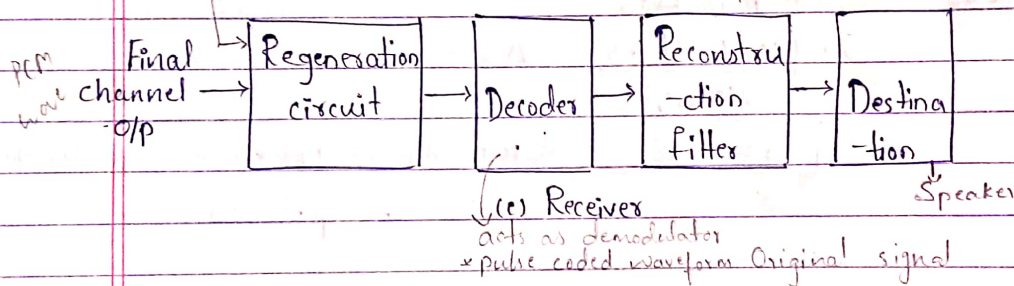 PCM
wave
Final
channel
O/P
Regeneration
circuit
Decoder
Reconstru
-ction
filter
Destina
-tion
Speaker
(c) Receiver
acts as demodulator
* pulse coded waveform Original signal